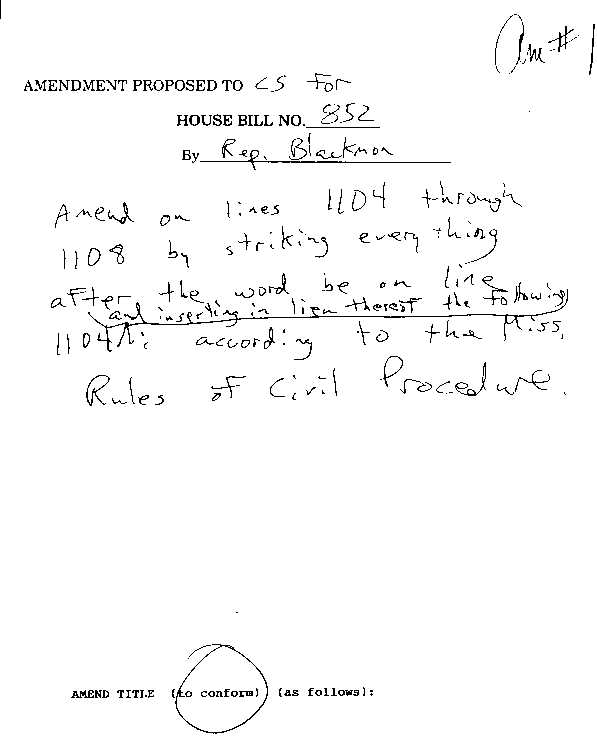 Am # 1
AMENDMENT PROPOSED TO CS For
HOUSE BILL NO. 852
By Rep. Blackmon
Amend on lines 1104 through
1108 by striking everything
after the word be on line
and inserting in lieu thereof the following
1104 : according to the Miss.
Rules of Civil Procedure.
AMEND TITLE (to conform) (as follows):